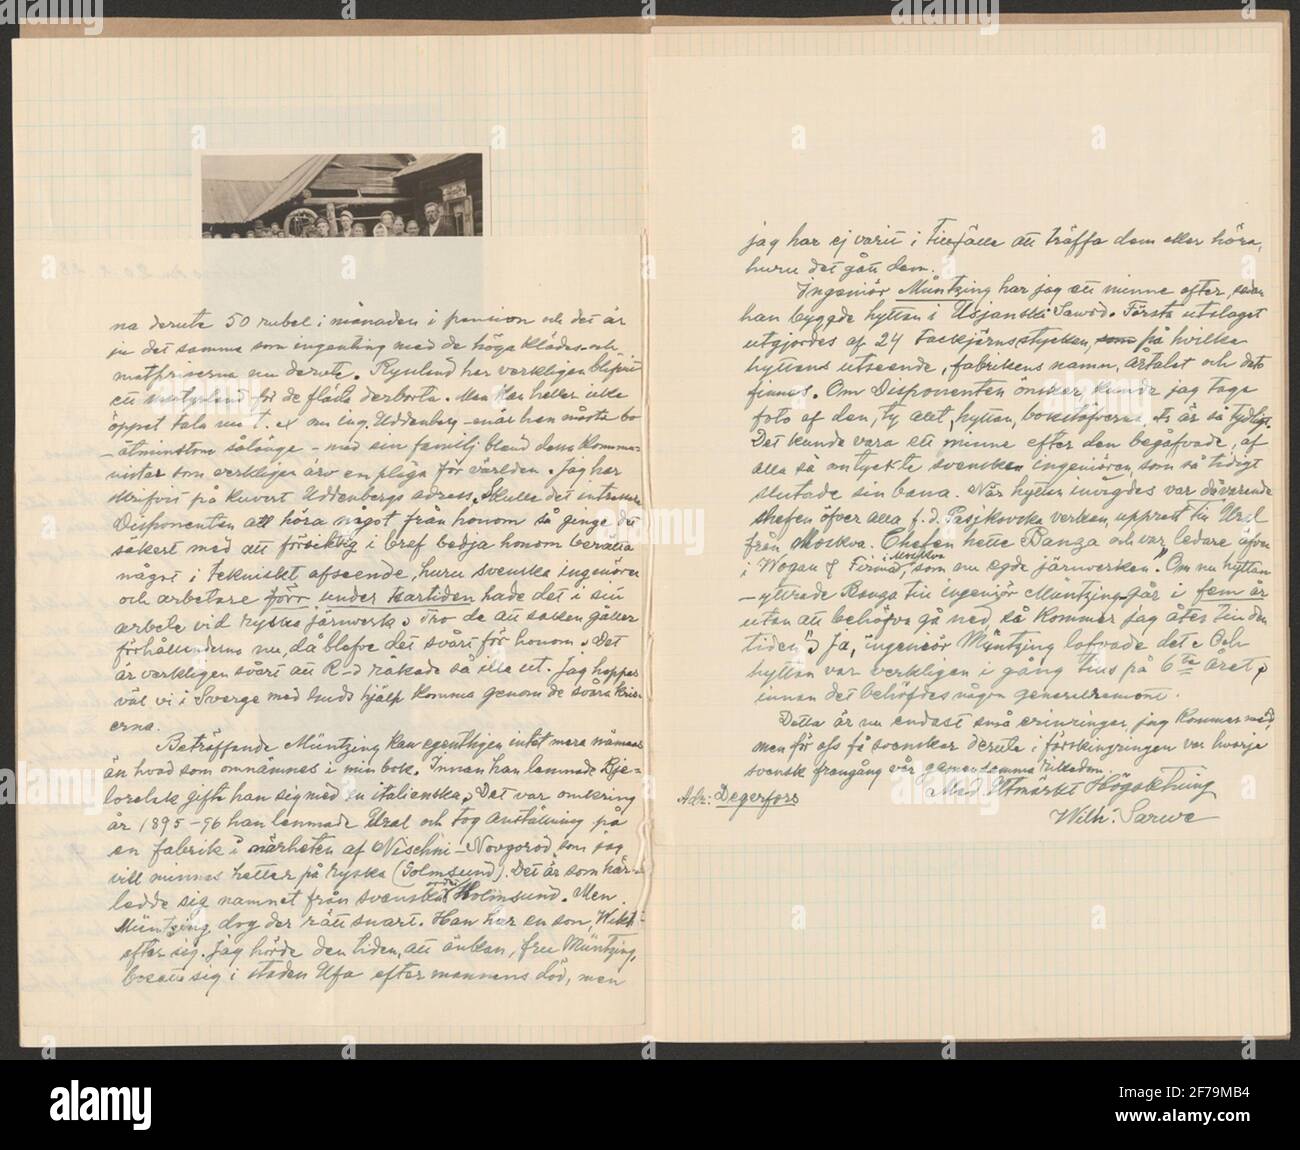 na derute 50 rubel i månaden i pension och det är
ju det samma som ingenting med de höga klädes- och
matpriserna nu derute. Rysland har verkligen blifvit
ett för de flesta derborta. Men kan heller icke
öppet tala med. ex om ing. Uddenberg - när han måste bo
- åtminstone sålänge - med sin familj bland dessa kommu-
nister som verkligen äro en plåga för världen. Jag har
skrifvit på kuvert Uddenbergs adress. Skulle det intressera
Disponenten att höra något från honom så ginge det
säkert med att försiktig i bref bedja honom berätta
något i tekniskt afseende, huru svenska ingeniörer
och arbetare förr under tzartiden hade det i sin
arbete vid ryska järnverk. Tro de att saken gäller
förhållanderna nu, då blefve det svårt för honom. Det
är verkligen svårt att R-d råkade så illa ut. Jag hoppas
väl vi i Sverge med Guds hjelp komma genom de svåra kris-
erna.
Beträffande Müntzing kan egentligen intet mera nämnas
än hvad som omnämnes i min bok. Innan han lemnade Bje-
loretsk gifte han sig med en italienska. Det var omkring
år 1895-96 han lemnade Ural och tog anställning på
en fabrik i närheten af Nischni-Novgorod som jag
vill minnas hetter på ryska (Golmsund). Det är som här-
ledde sig namnet från svenska ordet Holmsund. Men
Müntzing dog der rätt snart. Han har en son, Wikt-
efter sig. Jag hörde den tiden, att änkan, fru Müntzing,
bosatt sig i staden Ufa efter mannens död, men
jag har ej varit i tillfälle att träffa dem eller höra,
huru det gått dem.
Ingeniör Müntzing har jag ett minne efter, sedan
han byggde hyttan i Usjanski-Sawod. Första utslaget
utgjordes af 24 tackjärnsstycken, som på hvilka
hyttans utseende, fabrikens namn, årtalet och dato
finnes. Om Disponenten önskar, kunde jag taga
foto af den, ty allt, hyttan, bokstäfverna, är så tydligt.
Det kunde vara ett minne efter den begåfvade, af
alla så omtyckte svenske ingeniören, som så tidigt
slutade sin bana. När hyttan invigdes var dåvarande
chefen öfver alla f. d. Pasjkovska verken upprest till Ural
från Moskva. Chefen hette Banza och var ledare öfver
i Wogau & Firma, i Moskva, som nu egde järnverken. "Om nu hyttan
- yttrade Banza till ingeniör Müntzing - går i fem år
utan att behöfva gå ned, så kommer jag åter till den
tiden". Ja, ingeniör Müntzing lofvade det. Och
hyttan var verkligen i gång tills på 6te året,
innan det behöfdes någon generalremont.
Detta är nu endast små erinringar, jag kommer med,
men för oss få svenskar derute i förskingringen var hvarje
svensk framgång vår gemensamma
Med Utmärkt Högaktning
Wilh. Sarwe
Adr: Degerfors
alamy
Image ID: 2F79MB4
www.alamy.com